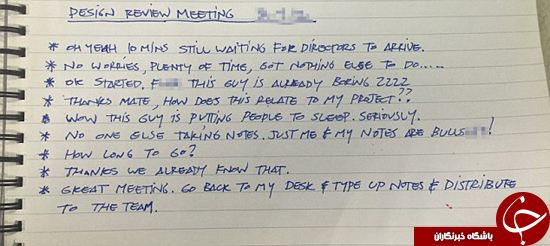 DESIGN REVIEW MEETING
* OH YEAH 10 MINS STILL WAITING FOR DIRECTORS TO ARRIVE.
* NO WORRIES, PLENTY OF TIME, GOT NOTHING ELSE TO DO.....
* OK STARTED. F THIS GUY IS ALREADY BORING ZZZZ
* THANKS MATE, HOW DOES THIS RELATE TO MY PROJECT??
* WOW THIS GUY IS PUTTING PEOPLE TO SLEEP. SERIOUSLY.
* NO ONE ELSE TAKING NOTES. JUST ME & MY NOTES ARE BULLS !
* HOW LONG TO GO?
* THANKS WE ALREADY KNOW THAT.
* GREAT MEETING. GO BACK TO MY DESK & TYPE UP NOTES & DISTRIBUTE
TO THE TEAM.
باشگاه خبرنگاران